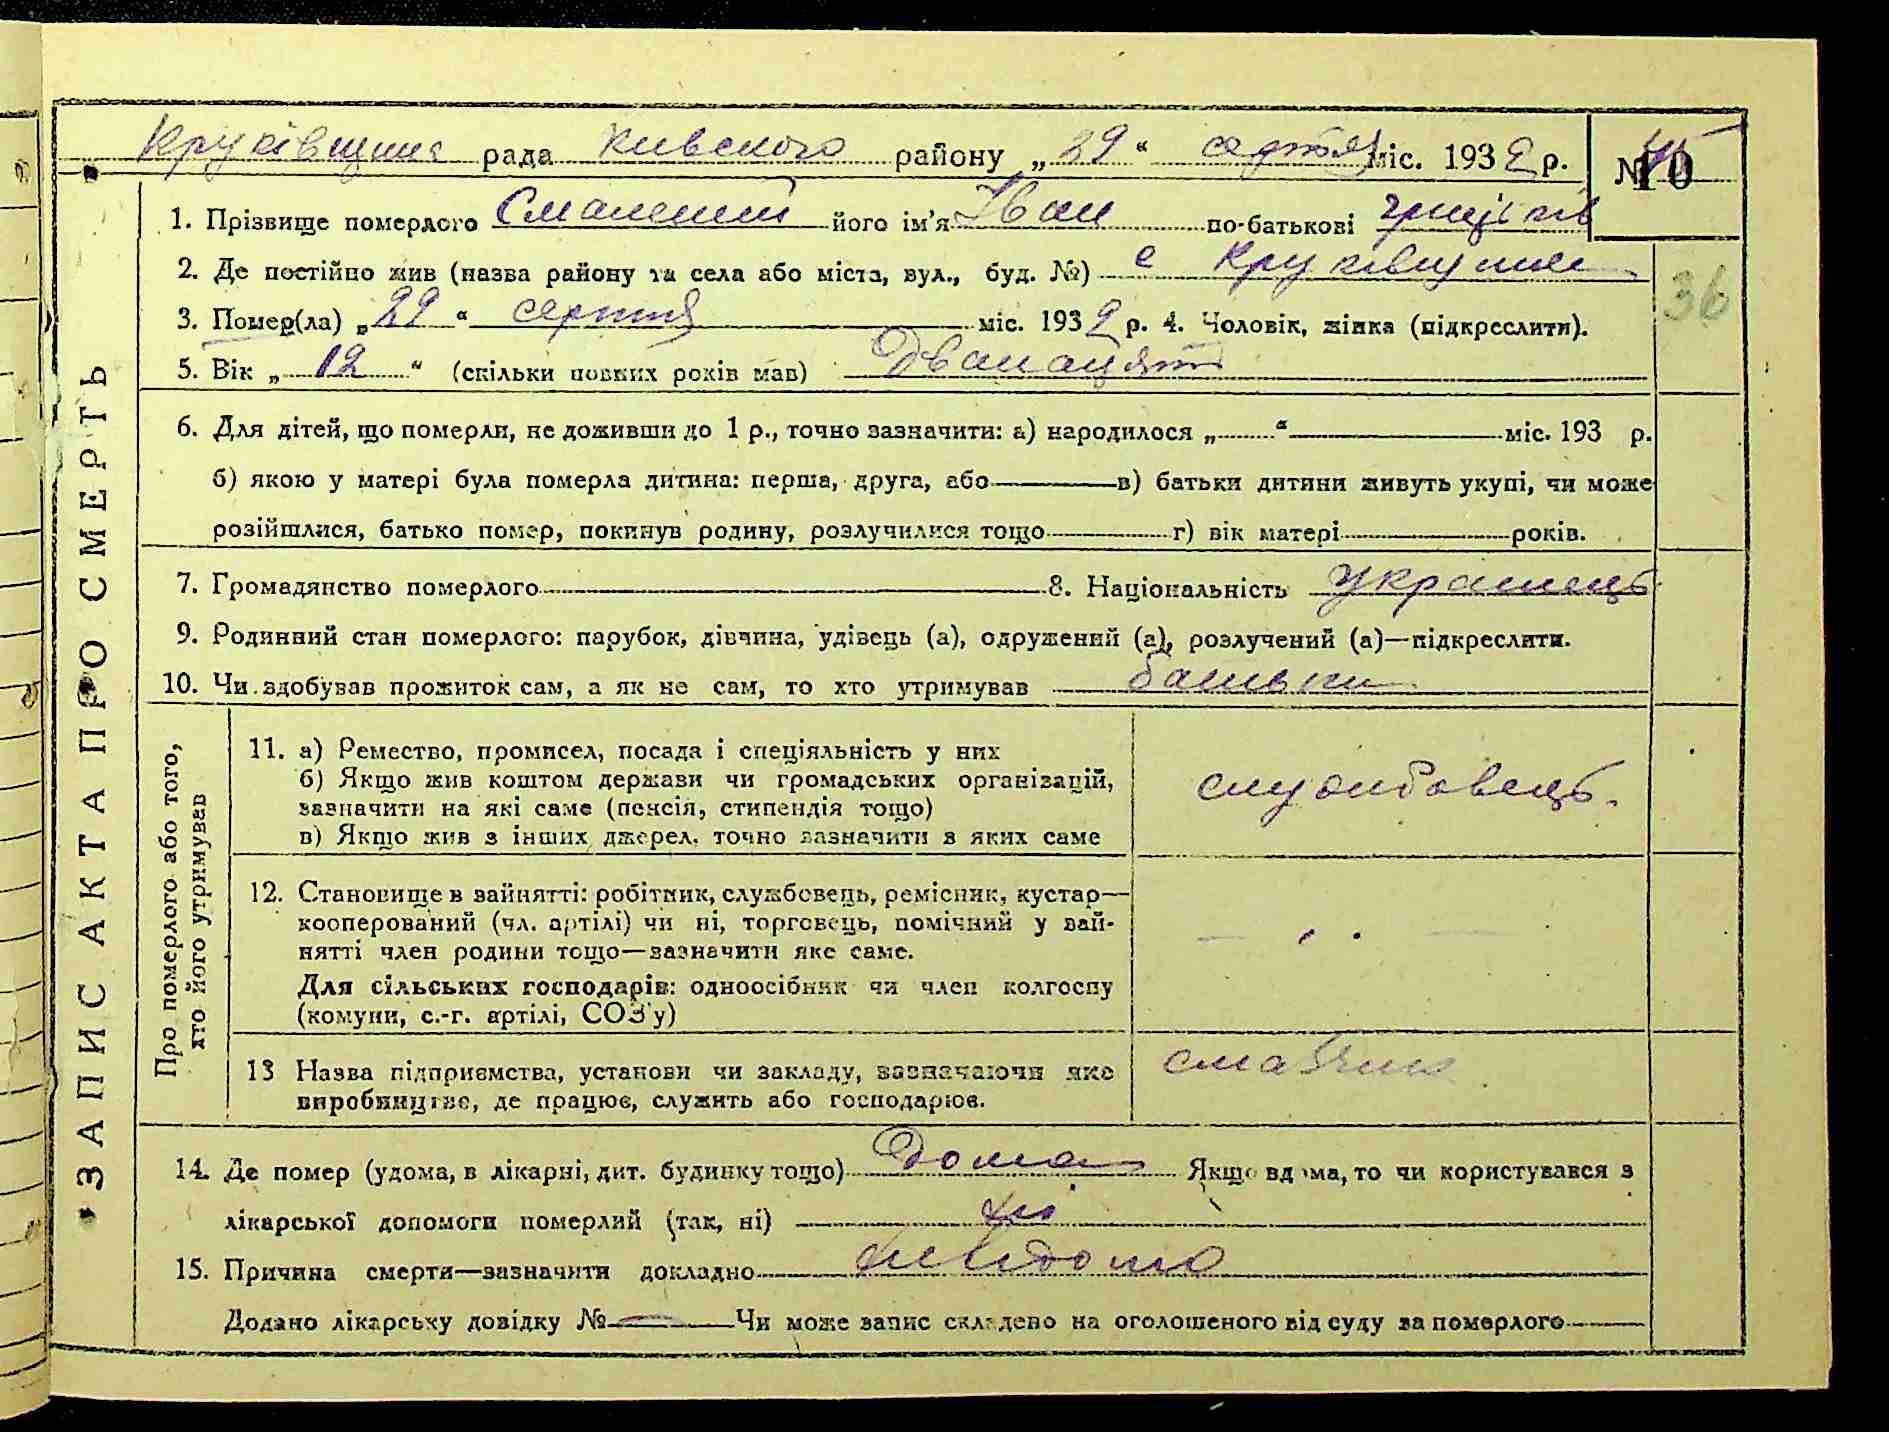 Круківщина рада Київського району „29“ серпня міс. 1932 р. № 10
1. Прізвище померлого Смалений його ім'я Іван по-батькові
2. Де постійно жив (назва району та села або міста, вул., буд. №) с Круківщина
36
3. Помер(ла) „29“ серпня міс. 1932 р. 4. Чоловік, жінка (підкреслити).
5. Вік „12“ (скільки повних років мав) Дванацять
6. Для дітей, що померли, не доживши до 1 р., точно зазначити: а) народилося „ “ міс. 193 р.
б) якою у матері була померла дитина: перша, друга, або в) батьки дитини живуть укупі, чи може
розійшлися, батько помер, покинув родину, розлучилися тощо г) вік матері років.
7. Громадянство померлого 8. Національність Українець
9. Родинний стан померлого: парубок, дівчина, удівець (а), одружений (а), розлучений (а)—підкреслити.
10. Чи здобував прожиток сам, а як не сам, то хто утримував батьки
ЗАПИС АКТА ПРО СМЕРТЬ
Про померлого або того,
хто його утримував
11. а) Ремество, промисел, посада і спеціяльність у них
б) Якщо жив коштом держави чи громадських організацій,
зазначити на які саме (пенсія, стипендія тощо)
в) Якщо жив з інших джерел, точно зазначити з яких саме
службовець.
12. Становище в зайнятті: робітник, службовець, ремісник, кустар—
кооперований (чл. артілі) чи ні, торговець, помічний у зай-
нятті член родини тощо—зазначити яке саме.
Для сільських господарів: одноосібник чи член колгоспу
(комуни, с.-г. артілі, СОЗ'у)
13 Назва підприємства, установи чи закладу, зазначаючи яке
виробництво, де працює, служить або господарює.
14. Де помер (удома, в лікарні, дит. будинку тощо) Дома Якщо вдома, то чи користувався з
лікарської допомоги померлий (так, ні) ні
15. Причина смерти—зазначити докладно невідомо
Додано лікарську довідку № — Чи може запис складено на оголошеного від суду за померлого